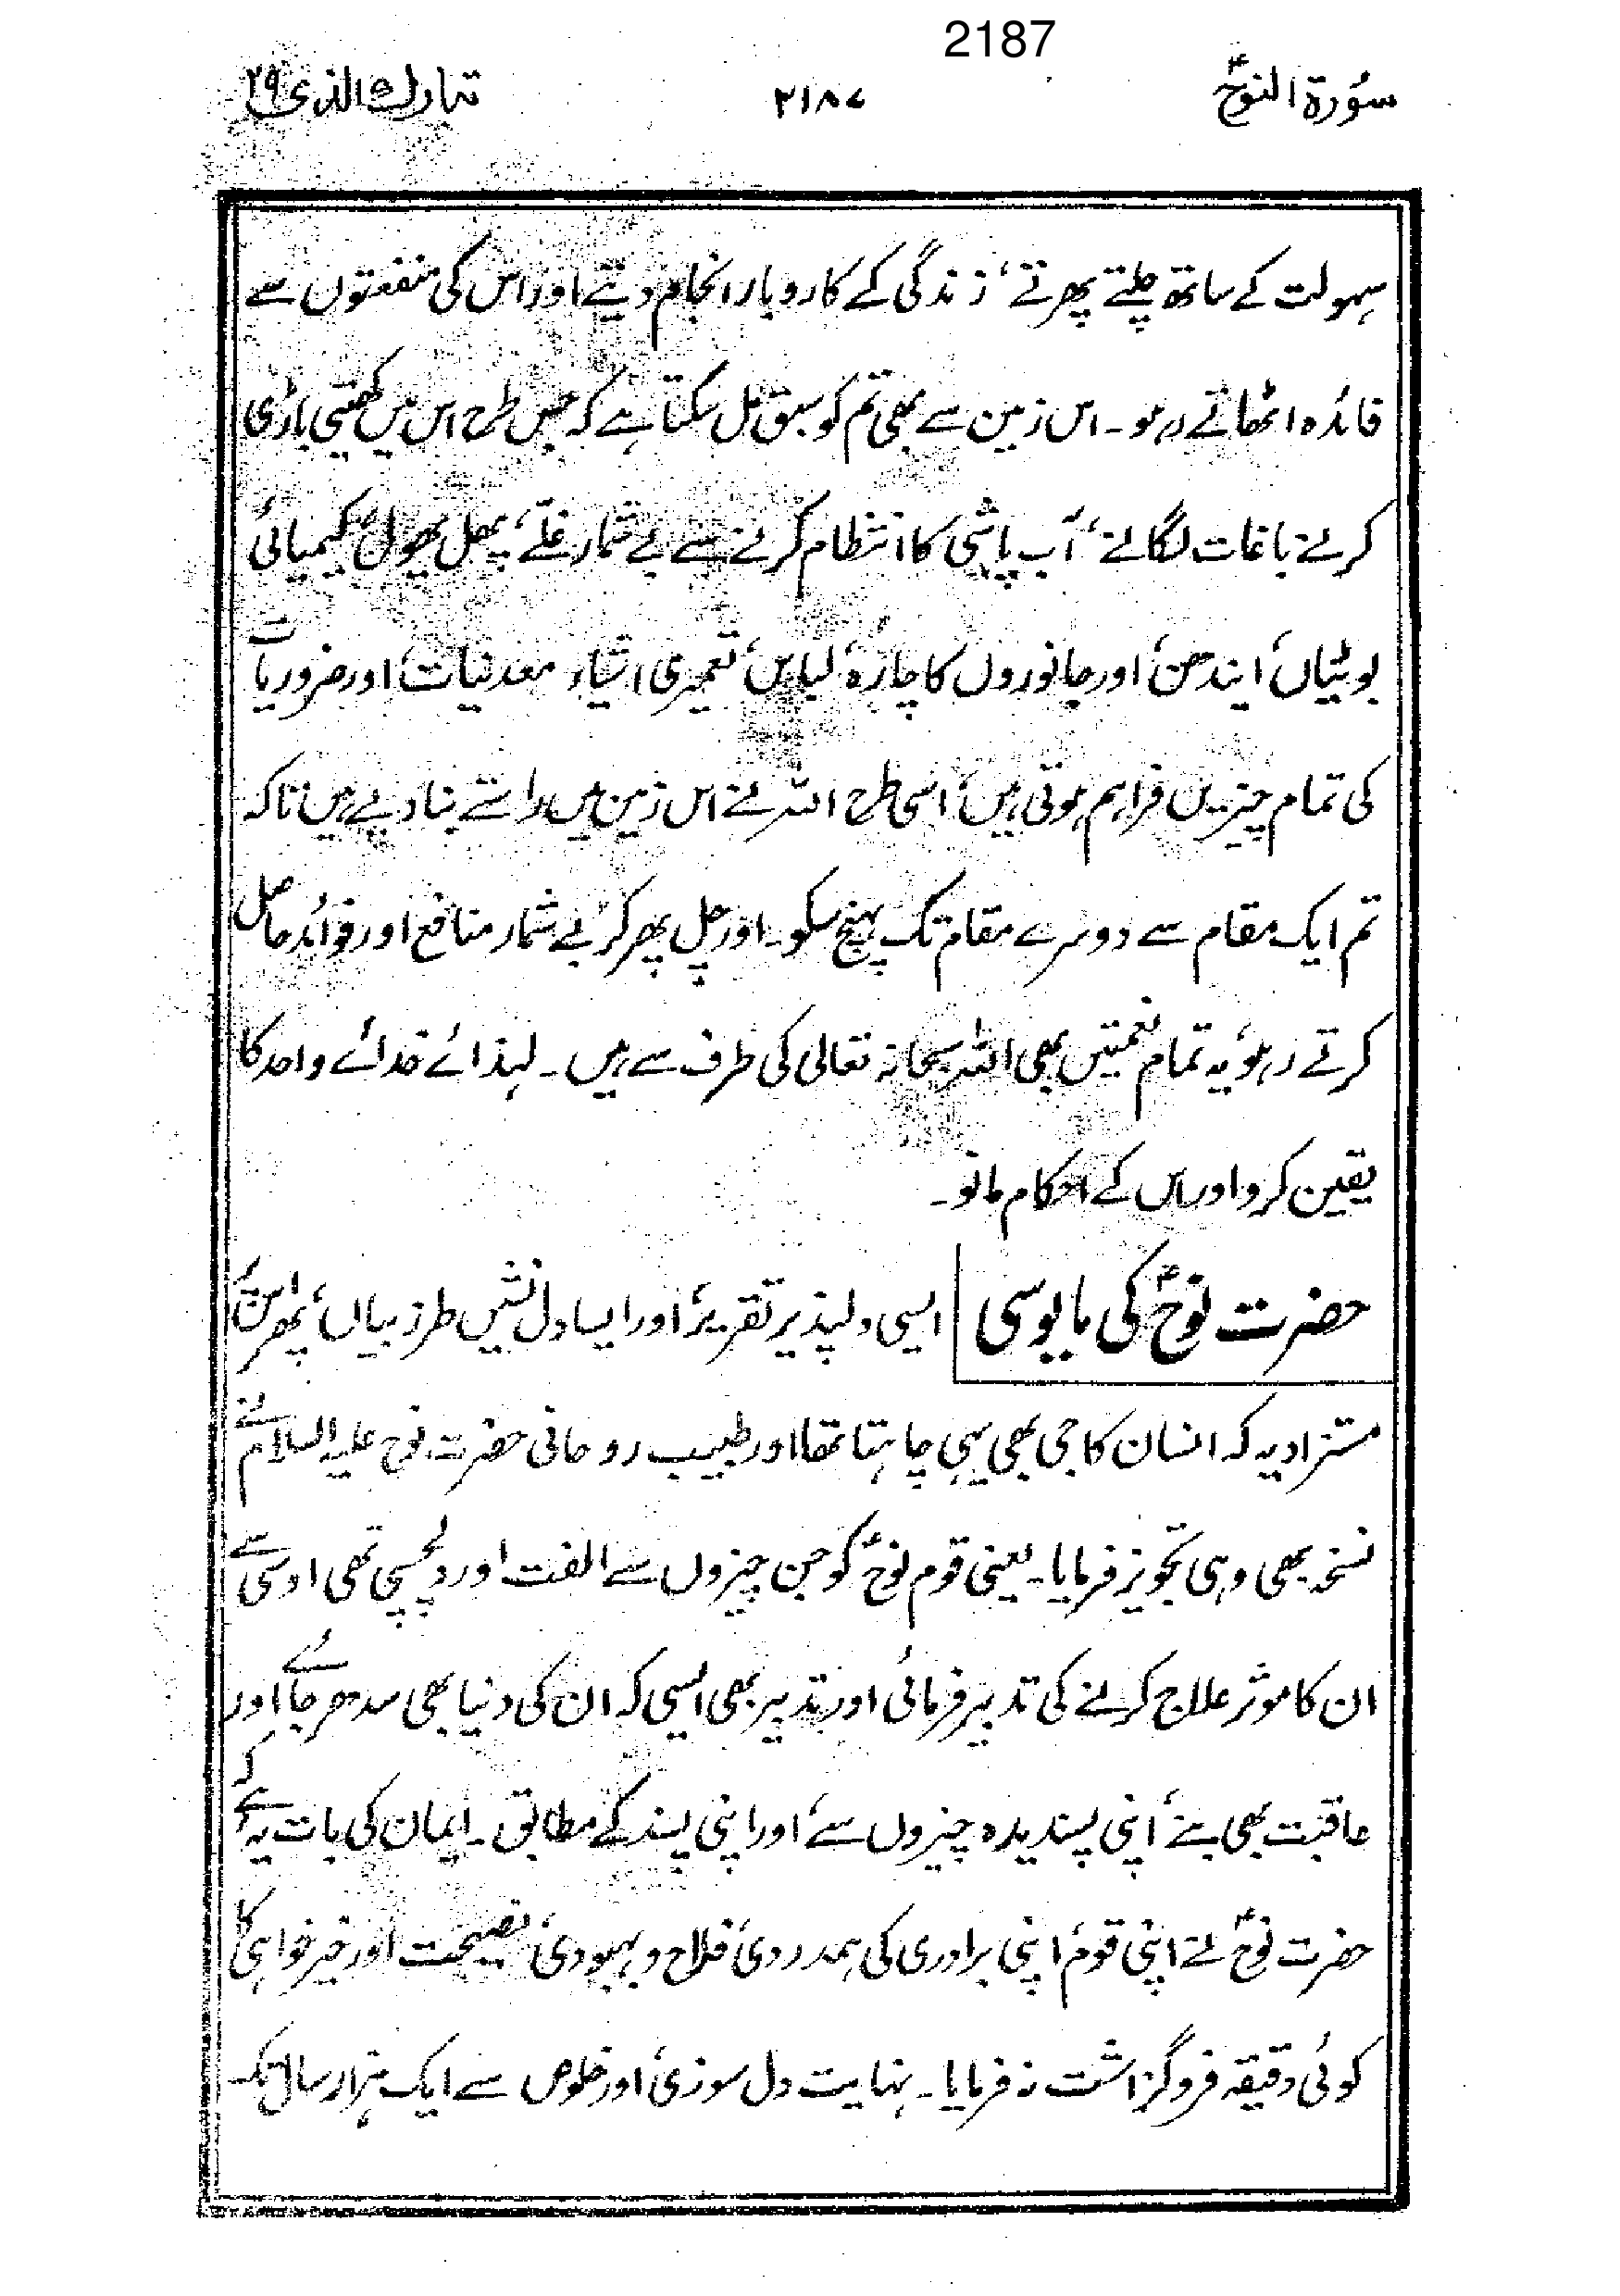 2187
سُورۃ النوحؑ
۲۱۸۷
تبارك الذی ۲۹
سہولت کے ساتھ چلتے پھرتے، زندگی کے کاروبار انجام دیتے اور اس کی منفعتوں سے
فائدہ اٹھاتے رہو۔ اس زمین سے بھی تم کو سبق مل سکتا ہے کہ جس طرح اس میں کھیتی باڑی
کرنے باغات لگانے، آب پاشی کا انتظام کرنے سے بے شمار غلّے، پھل پھول، کیمیائی
بوٹیاں، ایندھن، اور جانوروں کا چارہ، لباس، تعمیری اشیاء، معدنیات، اور ضروریات
کی تمام چیزیں فراہم ہوتی ہیں، اسی طرح اللہ نے اس زمین میں راستے بنا دیے ہیں تاکہ
تم ایک مقام سے دوسرے مقام تک پہنچ سکو۔ اور چل پھر کر بے شمار منافع اور فوائد حاصل
کرتے رہو، یہ تمام نعمتیں بھی اللہ سبحانہ تعالی کی طرف سے ہیں۔ لہذا اے خدائے واحد کا
یقین کرو اور اس کے احکام مانو۔
حضرت نوحؑ کی مایوسی
ایسی دلپذیر تقریر، اور ایسا دل نشیں طرز بیاں، پھر اس پر
مستزاد یہ کہ انسان کا جی بھی یہی چاہتا تھا اور طبیب روحانی حضرت نوح علیہ السلام نے
نسخہ بھی وہی تجویز فرمایا۔ یعنی قوم نوحؑ کو جن چیزوں سے الفت اور دلچسپی تھی اوسی سے
ان کا موثر علاج کرنے کی تدبیر فرمائی اور تدبیر بھی ایسی کہ ان کی دنیا بھی سدھر جائے اور
عاقبت بھی بنے، اپنی پسندیدہ چیزوں سے، اور اپنی پسند کے مطابق۔ ایمان کی بات یہ ہے کہ
حضرت نوحؑ نے اپنی قوم، اپنی برادری کی ہمدردی، فلاح و بہبودی، نصیحت اور خیر خواہی کا
کوئی دقیقہ فروگزاشت نہ فرمایا۔ نہایت دل سوزی، اور خلوص سے ایک ہزار سال تک